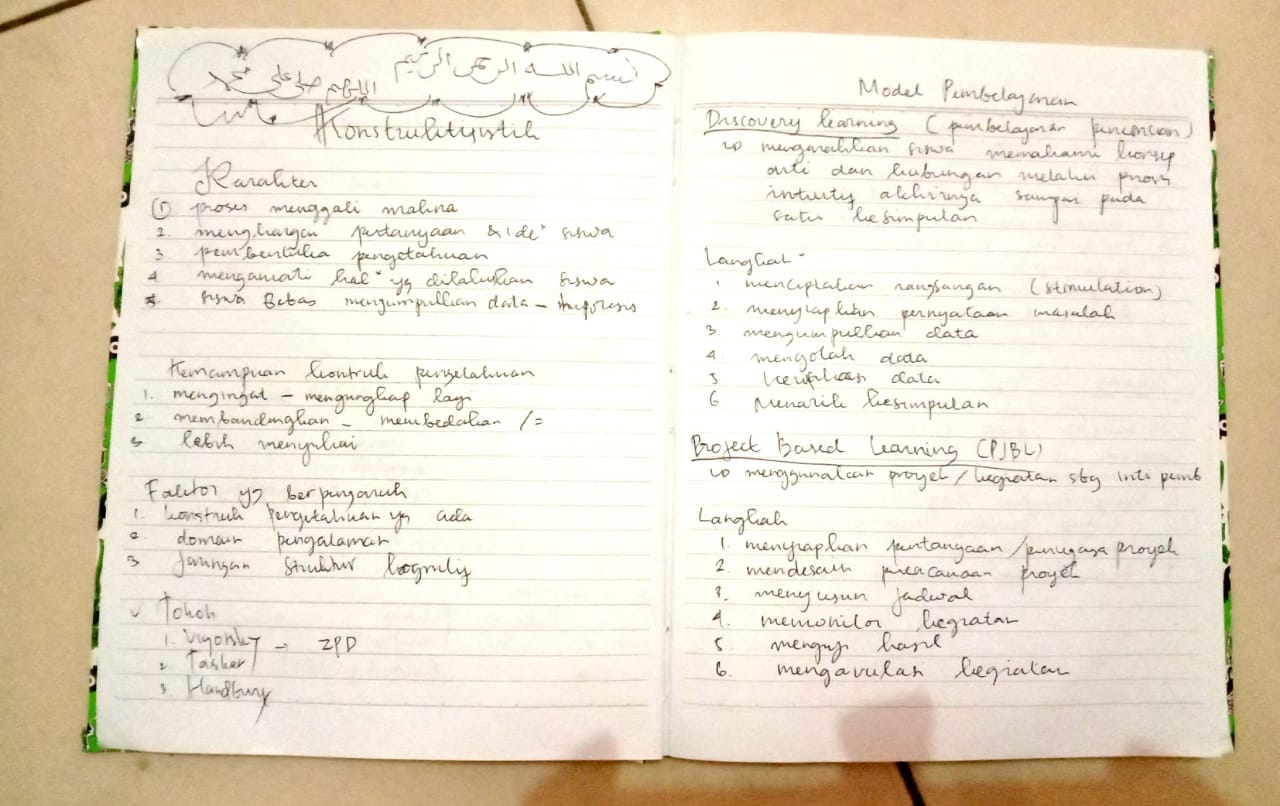 بسم الله الرحمن الرحيم
اللهم صل على محمد
#Konstruktivistik
Karakter
1 proses menggali makna
2. menghargai pertanyaan & ide² siswa
3 pembentuka pengetahuan
4 mengamati hal² yg dilakukan siswa
5 siswa Bebas mengumpulkan data -
Kemampuan kontruk pengetahuan
1. mengingat - mengungkap lagi
2 membandingkan - membedakan /=
3 lebih menyukai
Faktor yg berpengaruh
1. konstruk pengetahuan yg ada
2 domain pengalaman
3 Jaringan struktur kognitif
✓ Tokoh
1. Vigotsky - ZPD
2 Tasker
3 Handbury
Model Pembelajaran
Discovery learning (pembelajaran penemuan)
↳ mengarahkan siswa memahami konsep
arti dan hubungan melalui proses
intuity akhirnya sampai pada
satu kesimpulan
Langkah²
1 menciptakan rangsangan (stimulation)
2. menyiapkan pernyataan masalah
3. mengumpulkan data
4 mengolah data
5 data
6 Menarik kesimpulan
Project Based Learning (PJBL)
↳ menggunakan proyek/kegiatan sbg inti pemb
Langkah
1. menyiapkan pertanyaan / proyek
2. mendesain perencanaan proyek
3. menyusun jadwal
4. memonitor kegiatan
5 menguji hasil
6. mengavuluasi kegiatan